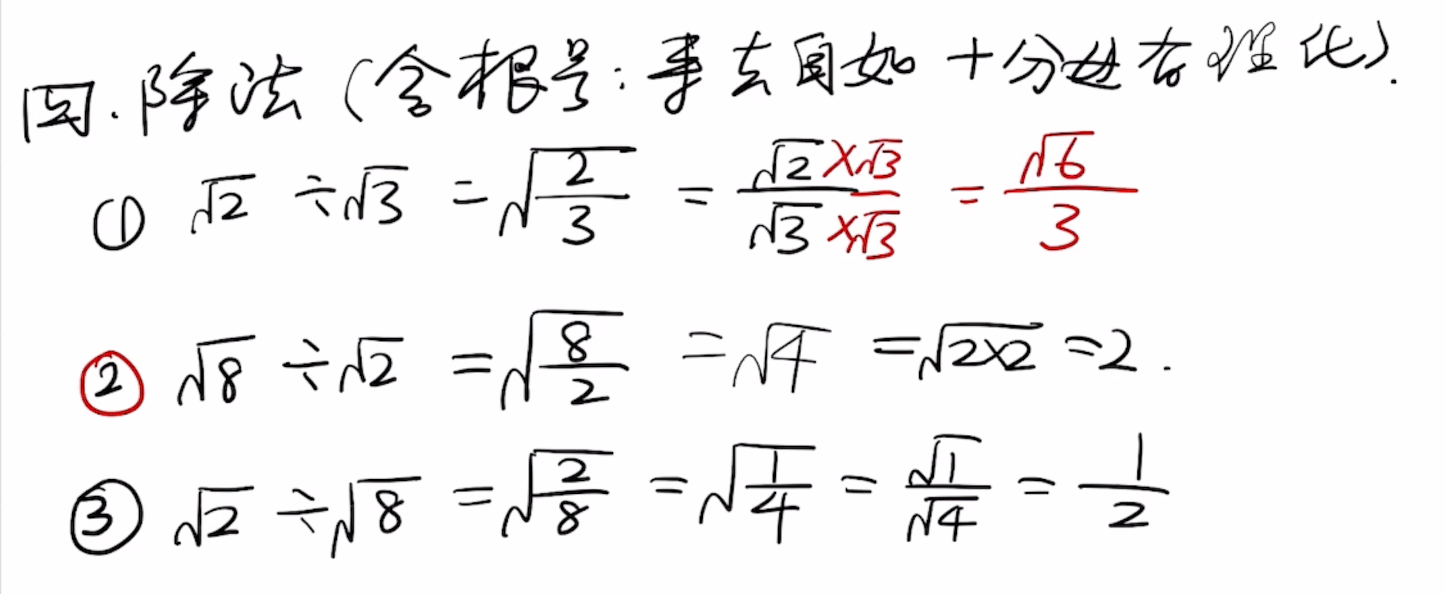 四.除法(含根号:来去自如+分母有理化).
① √2 ÷ √3 = √(2/3) = (√2×√3)/(√3×√3) = √6/3
② √8 ÷ √2 = √(8/2) = √4 = √(2×2) = 2.
③ √2 ÷ √8 = √(2/8) = √(1/4) = √1/√4 = 1/2